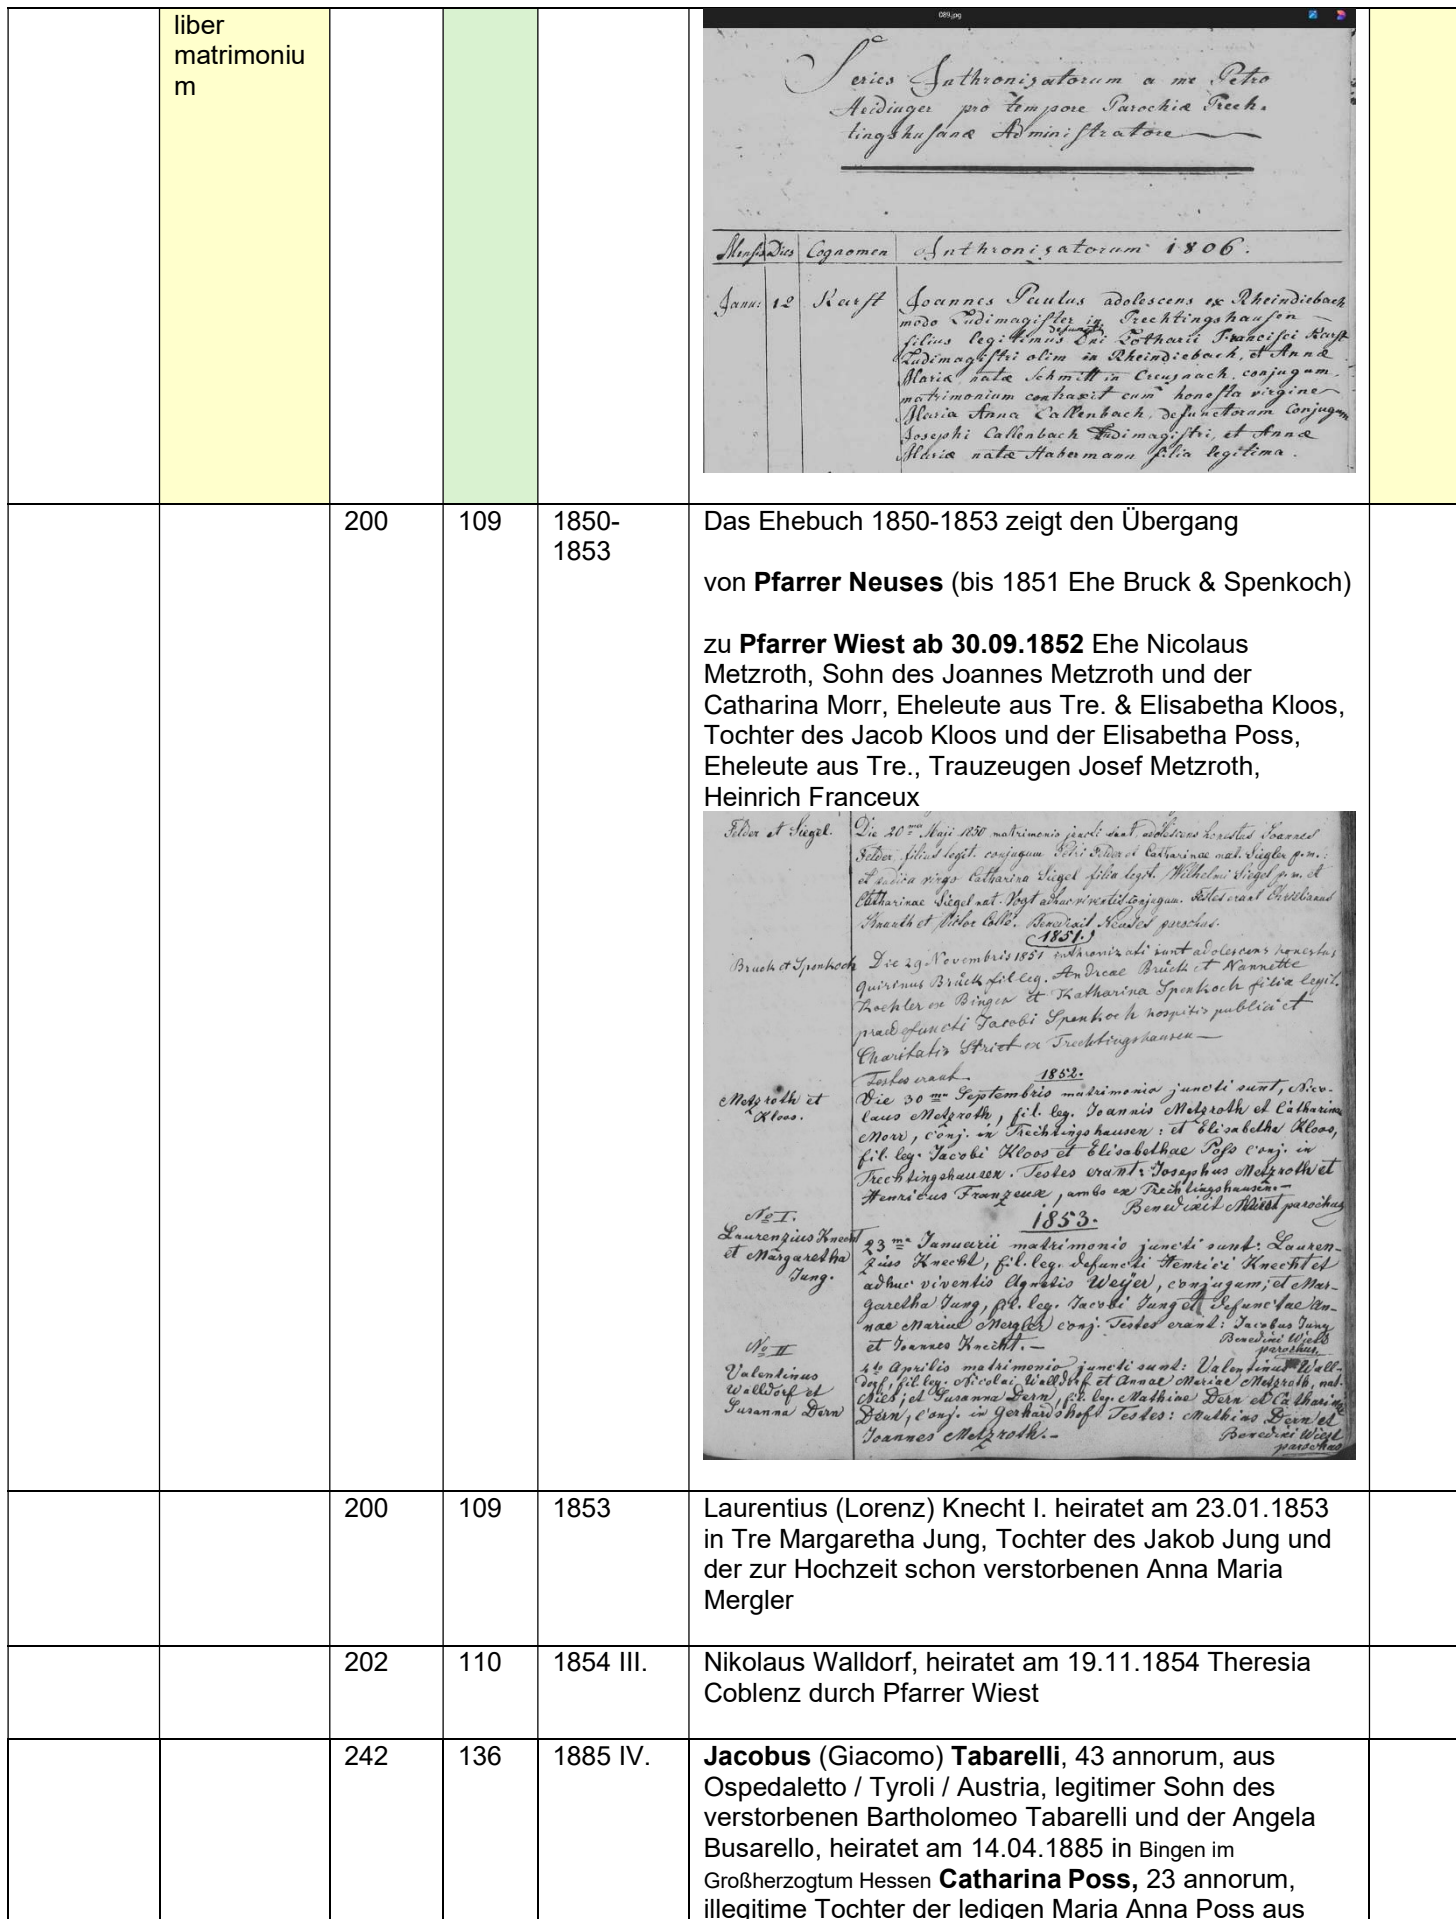 liber
matrimoniu
m
089.jpg
Series Inthronizatorum a me Petro
Heidinger pro tempore Parochiæ Trech-
tingshusanæ Administratore
Mensis Dies Cognomen Inthronizatorum 1806.
Janu: 12 Karst Joannes Paulus adolescens ex Rheindiebach
modo Ludimagister in Trechtingshausen
filius legitimus defuncti Dni Lotharii Francisci Karst
Ludimagistri olim in Rheindiebach, et Annæ
Mariæ natæ Schmitt in Creusnach conjugum
matrimonium contraxit cum honesta virgine
Maria Anna Callenbach, defunctorum Conjugum
Josephi Callenbach Ludimagistri, et Annæ
Mariæ natæ Habermann filia legitima.
200 109 1850-
1853
Das Ehebuch 1850-1853 zeigt den Übergang
von Pfarrer Neuses (bis 1851 Ehe Bruck & Spenkoch)
zu Pfarrer Wiest ab 30.09.1852 Ehe Nicolaus
Metzroth, Sohn des Joannes Metzroth und der
Catharina Morr, Eheleute aus Tre. & Elisabetha Kloos,
Tochter des Jacob Kloos und der Elisabetha Poss,
Eheleute aus Tre., Trauzeugen Josef Metzroth,
Heinrich Franceux
Felder et Siegel. Die 20ma Maji 1850 matrimonio juncti sunt, adolescens honestus Joannes
Felder, filius legit. conjugum Petri Felder et Catharinae nat. Siegler p.m.:
et pudica virgo Catharina Siegel filia legit. Wilhelmi Siegel p.m. et
Catharinae Siegel nat. Vogt adhuc viventis conjugum. Testes erant Christianus
Knauth et Victor Collé. Benedixit Neuses parochus.
1851.
Bruck et Spenkoch Die 29 Novembris 1851 inthronizati sunt adolescens honestus
Quirinus Brück fil leg. Andreae Brück et Nannette
Koehler ex Bingen et Katharina Spenkoch filia legit.
praedefuncti Jacobi Spenkoch hospitis publici et
Charitatis Strict ex Trechtingshausen
Testes erant
1852.
Metzroth et
Kloos.
Die 30ma Septembris matrimonio juncti sunt, Nico-
laus Metzroth, fil. leg. Joannis Metzroth et Catharina
Morr, conj. in Trechtingshausen: et Elisabetha Kloos,
fil. leg. Jacobi Kloos et Elisabethae Poss conj. in
Trechtingshausen. Testes erant: Josephus Metzroth et
Henricus Franzeux, ambo ex Trechtingshausen.-
Benedixit Wiest parochus
1853.
No I.
Laurenzius Knecht
et Margaretha
Jung.
23ma Januarii matrimonio juncti sunt: Lauren-
zius Knecht, fil. leg. defuncti Henrici Knecht et
adhuc viventis Agnetis Weyer, conjugum; et Mar-
garetha Jung, fil. leg. Jacobi Jung et defunctae An-
nae Mariae Mergler conj. Testes erant: Jacobus Jung
et Joannes Knecht.-
Benedixi Wiest
parochus.
No II
Valentinus
Walldorf et
Susanna Dern
4to Aprilis matrimonio juncti sunt: Valentinus Wall-
dorf, fil. leg. Nicolai Walldorf et Annae Mariae Metzroth, nat.
Nies; et Susanna Dern, fil. leg. Mathiae Dern et Catharina
Dern, conj. in Gerhardshoft Testes: Mathias Dern et
Joannes Metzroth.-
Benedixi Wiest
parochus
200 109 1853 Laurentius (Lorenz) Knecht I. heiratet am 23.01.1853
in Tre Margaretha Jung, Tochter des Jakob Jung und
der zur Hochzeit schon verstorbenen Anna Maria
Mergler
202 110 1854 III. Nikolaus Walldorf, heiratet am 19.11.1854 Theresia
Coblenz durch Pfarrer Wiest
242 136 1885 IV. Jacobus (Giacomo) Tabarelli, 43 annorum, aus
Ospedaletto / Tyroli / Austria, legitimer Sohn des
verstorbenen Bartholomeo Tabarelli und der Angela
Busarello, heiratet am 14.04.1885 in Bingen im
Großherzogtum Hessen Catharina Poss, 23 annorum,
illegitime Tochter der ledigen Maria Anna Poss aus